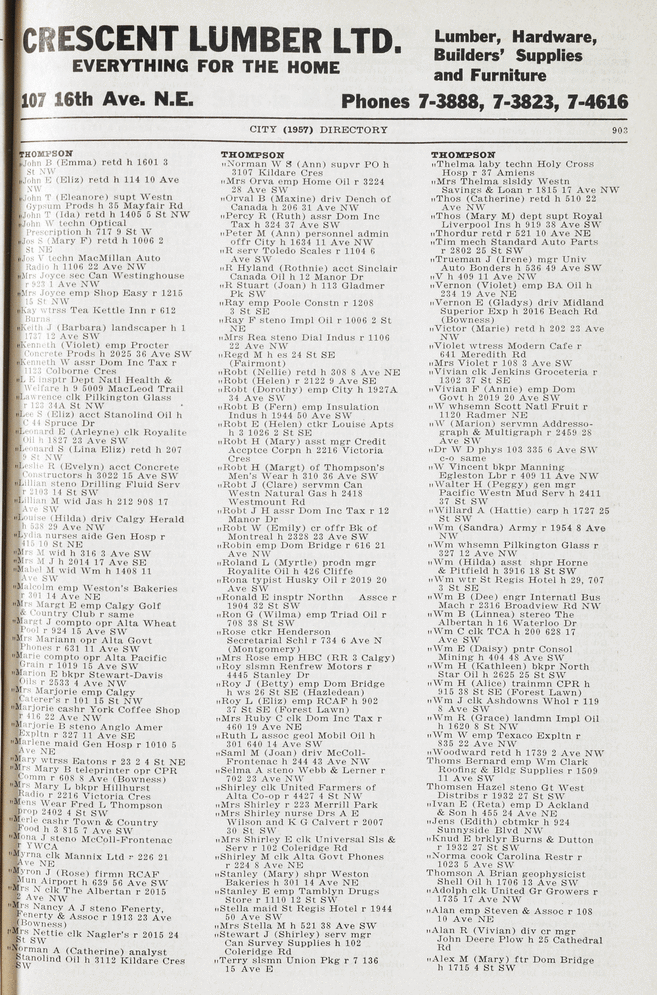 CRESCENT LUMBER LTD.
EVERYTHING FOR THE HOME
107 16th Ave. N.E.
Lumber, Hardware,
Builders' Supplies
and Furniture
Phones 7-3888, 7-3823, 7-4616
CITY (1957) DIRECTORY 903
THOMPSON
"John B (Emma) retd h 1601 3
St NW
"John E (Eliz) retd h 114 10 Ave
NW
"John T (Eleanore) supt Westn
Gypsum Prods h 35 Mayfair Rd
"John T (Ida) retd h 1405 5 St NW
"John W techn Optical
Prescription h 717 9 St W
"Jos S (Mary F) retd h 1006 2
St NE
"Jos V techn MacMillan Auto
Radio h 1106 22 Ave NW
"Mrs Joyce sec Can Westinghouse
r 923 1 Ave NW
"Mrs Joyce emp Shop Easy r 1215
15 St NW
"Kay wtrss Tea Kettle Inn r 612
Burns
"Keith J (Barbara) landscaper h 1
1737 12 Ave SW
"Kenneth (Violet) emp Procter
Concrete Prods h 2025 36 Ave SW
"Kenneth W assr Dom Inc Tax r
1123 Colborne Cres
"L E insptr Dept Natl Health &
Welfare h 9 5009 MacLeod Trail
"Lawrence clk Pilkington Glass
r 123 34A St NW
"Lee S (Eliz) acct Stanolind Oil h
C 44 Spruce Dr
"Leonard E (Arleyne) clk Royalite
Oil h 1827 23 Ave SW
"Leonard S (Lina Eliz) retd h 207
9 St NW
"Leslie R (Evelyn) acct Concrete
Constructors h 3022 15 Ave SW
"Lillian steno Drilling Fluid Serv
r 2103 14 St SW
"Lillian M wid Jas h 212 908 17
Ave SW
"Louise (Hilda) driv Calgy Herald
h 538 29 Ave NW
"Lydia nurses aide Gen Hosp r
415 10 St NE
"Mrs M wid h 316 3 Ave SW
"Mrs M J h 2014 17 Ave SE
"Mabel M wid Wm h 1408 11
Ave SW
"Malcolm emp Weston's Bakeries
r 301 14 Ave NE
"Mrs Margt E emp Calgy Golf
& Country Club r same
"Margt J compto opr Alta Wheat
Pool r 924 15 Ave SW
"Mrs Mariann opr Alta Govt
Phones r 631 11 Ave SW
"Marie compto opr Alta Pacific
Grain r 1019 15 Ave SW
"Marion E bkpr Stewart-Davis
Oils r 2533 4 Ave NW
"Mrs Marjorie emp Calgy
Caterer's r 101 15 St NW
"Marjorie cashr York Coffee Shop
r 416 22 Ave NW
"Marjorie B steno Anglo Amer
Expltn r 327 11 Ave SE
"Marlene maid Gen Hosp r 1010 5
Ave NE
"Mary wtrss Eatons r 23 2 4 St NE
"Mrs Mary B teleprinter opr CPR
Comm r 608 8 Ave (Bowness)
"Mrs Mary L bkpr Hillhurst
Radio r 2216 Victoria Cres
"Mens Wear Fred L Thompson
prop 2402 4 St SW
"Merie cashr Town & Country
Food h 3 815 7 Ave SW
"Mona J steno McColl-Frontenac
r YWCA
"Myrna clk Mannix Ltd r 226 21
Ave NE
"Myron J (Rose) firmn RCAF
Mun Airport h 639 56 Ave SW
"Mrs N clk The Albertan r 2015
2 Ave NW
"Mrs Nancy A J steno Fenerty,
Fenerty & Assoc r 1913 23 Ave
(Bowness)
"Mrs Nettie clk Nagler's r 2015 24
St SW
"Norman A (Catherine) analyst
Stanolind Oil h 3112 Kildare Cres
SW
THOMPSON
"Norman W S (Ann) supvr PO h
3107 Kildare Cres
"Mrs Orva emp Home Oil r 3224
28 Ave SW
"Orval B (Maxine) driv Dench of
Canada h 206 31 Ave NW
"Percy R (Ruth) assr Dom Inc
Tax h 324 37 Ave SW
"Peter M (Ann) personnel admin
offr City h 1634 11 Ave NW
"R serv Toledo Scales r 1104 6
Ave SW
"R Hyland (Rothnie) acct Sinclair
Canada Oil h 12 Manor Dr
"R Stuart (Joan) h 113 Gladmer
Pk SW
"Ray emp Poole Constn r 1208
3 St SE
"Ray F steno Impl Oil r 1006 2 St
NE
"Mrs Rea steno Dial Indus r 1106
22 Ave NW
"Regd M h es 24 St SE
(Fairmont)
"Robt (Nellie) retd h 308 8 Ave NE
"Robt (Helen) r 2122 9 Ave SE
"Robt (Dorothy) emp City h 1927A
34 Ave SW
"Robt B (Fern) emp Insulation
Indus h 1944 50 Ave SW
"Robt E (Helen) ctkr Louise Apts
h 3 1026 2 St SE
"Robt H (Mary) asst mgr Credit
Accptce Corpn h 2216 Victoria
Cres
"Robt H (Margt) of Thompson's
Men's Wear h 310 36 Ave SW
"Robt J (Clare) servmn Can
Westn Natural Gas h 2418
Westmount Rd
"Robt J H assr Dom Inc Tax r 12
Manor Dr
"Robt W (Emily) cr offr Bk of
Montreal h 2328 23 Ave SW
"Robin emp Dom Bridge r 616 21
Ave NW
"Roland L (Myrtle) prodn mgr
Royalite Oil h 426 Cliffe
"Rona typist Husky Oil r 2019 20
Ave SW
"Ronald E insptr Northn Assce r
1904 32 St SW
"Ron G (Wilma) emp Triad Oil r
708 38 St SW
"Rose ctkr Henderson
Secretarial Schl r 734 6 Ave N
(Montgomery)
"Mrs Rose emp HBC (RR 3 Calgy)
"Roy slsmn Renfrew Motors r
4445 Stanley Dr
"Roy J (Betty) emp Dom Bridge
h ws 26 St SE (Hazledean)
"Roy L (Eliz) emp RCAF h 902
37 St SE (Forest Lawn)
"Mrs Ruby C clk Dom Inc Tax r
460 19 Ave NE
"Ruth L assoc geol Mobil Oil h
301 640 14 Ave SW
"Saml M (Joan) driv McColl-
Frontenac h 244 43 Ave NW
"Selma A steno Webb & Lerner r
702 23 Ave NW
"Shirley clk United Farmers of
Alta Co-op r 4427 4 St NW
"Mrs Shirley r 223 Merrill Park
"Mrs Shirley nurse Drs A E
Wilson and K G Calvert r 2007
30 St SW
"Mrs Shirley E clk Universal Sls &
Serv r 102 Coleridge Rd
"Shirley M clk Alta Govt Phones
r 224 8 Ave NE
"Stanley (Mary) shpr Weston
Bakeries h 301 14 Ave NE
"Stanley E emp Tamblyn Drugs
Store r 1110 12 St SW
"Stella maid St Regis Hotel r 1944
50 Ave SW
"Mrs Stella M h 521 38 Ave SW
"Stewart J (Shirley) serv mgr
Can Survey Supplies h 102
Coleridge Rd
"Terry slsmn Union Pkg r 7 136
15 Ave E
THOMPSON
"Thelma laby techn Holy Cross
Hosp r 37 Amiens
"Mrs Thelma slsldy Westn
Savings & Loan r 1815 17 Ave NW
"Thos (Catherine) retd h 510 22
Ave NW
"Thos (Mary M) dept supt Royal
Liverpool Ins h 919 38 Ave SW
"Thordur retd r 521 10 Ave NE
"Tim mech Standard Auto Parts
r 2802 25 St SW
"Trueman J (Irene) mgr Univ
Auto Bonders h 536 49 Ave SW
"V h 409 11 Ave NW
"Vernon (Violet) emp BA Oil h
234 19 Ave NE
"Vernon E (Gladys) driv Midland
Superior Exp h 2016 Beach Rd
(Bowness)
"Victor (Marie) retd h 202 23 Ave
NW
"Violet wtrss Modern Cafe r
641 Meredith Rd
"Mrs Violet r 108 3 Ave SW
"Vivian clk Jenkins Groceteria r
1302 37 St SE
"Vivian F (Annie) emp Dom
Govt h 2019 20 Ave SW
"W whsemn Scott Natl Fruit r
1120 Radmer NE
"W (Marion) servmn Addresso-
graph & Multigraph r 2459 28
Ave SW
"Dr W D phys 103 335 6 Ave SW
c-o same
"W Vincent bkpr Manning
Egleston Lbr r 409 11 Ave NW
"Walter H (Peggy) gen mgr
Pacific Westn Mud Serv h 2411
37 St SW
"Willard A (Hattie) carp h 1727 25
St SW
"Wm (Sandra) Army r 1954 8 Ave
NW
"Wm whsemn Pilkington Glass r
327 12 Ave NW
"Wm (Hilda) asst shpr Horne
& Pitfield h 3916 18 St SW
"Wm wtr St Regis Hotel h 29, 707
3 St SE
"Wm B (Dee) engr Internatl Bus
Mach r 2316 Broadview Rd NW
"Wm B (Linnea) stereo The
Albertan h 16 Waterloo Dr
"Wm C clk TCA h 200 628 17
Ave SW
"Wm E (Daisy) pntr Consol
Mining h 404 48 Ave SW
"Wm H (Kathleen) bkpr North
Star Oil h 2625 25 St SW
"Wm H (Alice) trainmn CPR h
915 38 St SE (Forest Lawn)
"Wm J clk Ashdowns Whol r 119
8 Ave SW
"Wm R (Grace) landmn Impl Oil
h 1620 8 St NW
"Wm W emp Texaco Expltn r
835 22 Ave NW
"Woodward retd h 1739 2 Ave NW
Thoms Bernard emp Wm Clark
Roofing & Bldg Supplies r 1509
11 Ave SW
Thomsen Hazel steno Gt West
Distribs r 1932 27 St SW
"Ivan E (Reta) emp D Ackland
& Son h 455 24 Ave NW
"Jens (Edith) cbtmkr h 924
Sunnyside Blvd NW
"Knud E brklyr Burns & Dutton
r 1932 27 St SW
"Norma cook Carolina Restr r
1023 5 Ave SW
Thomson A Brian geophysicist
Shell Oil h 1706 13 Ave SW
"Adolph clk United Gr Growers r
1735 17 Ave NW
"Alan emp Steven & Assoc r 108
10 Ave NE
"Alan R (Vivian) div cr mgr
John Deere Plow h 25 Cathedral
Rd
"Alex M (Mary) ftr Dom Bridge
h 1715 4 St SW